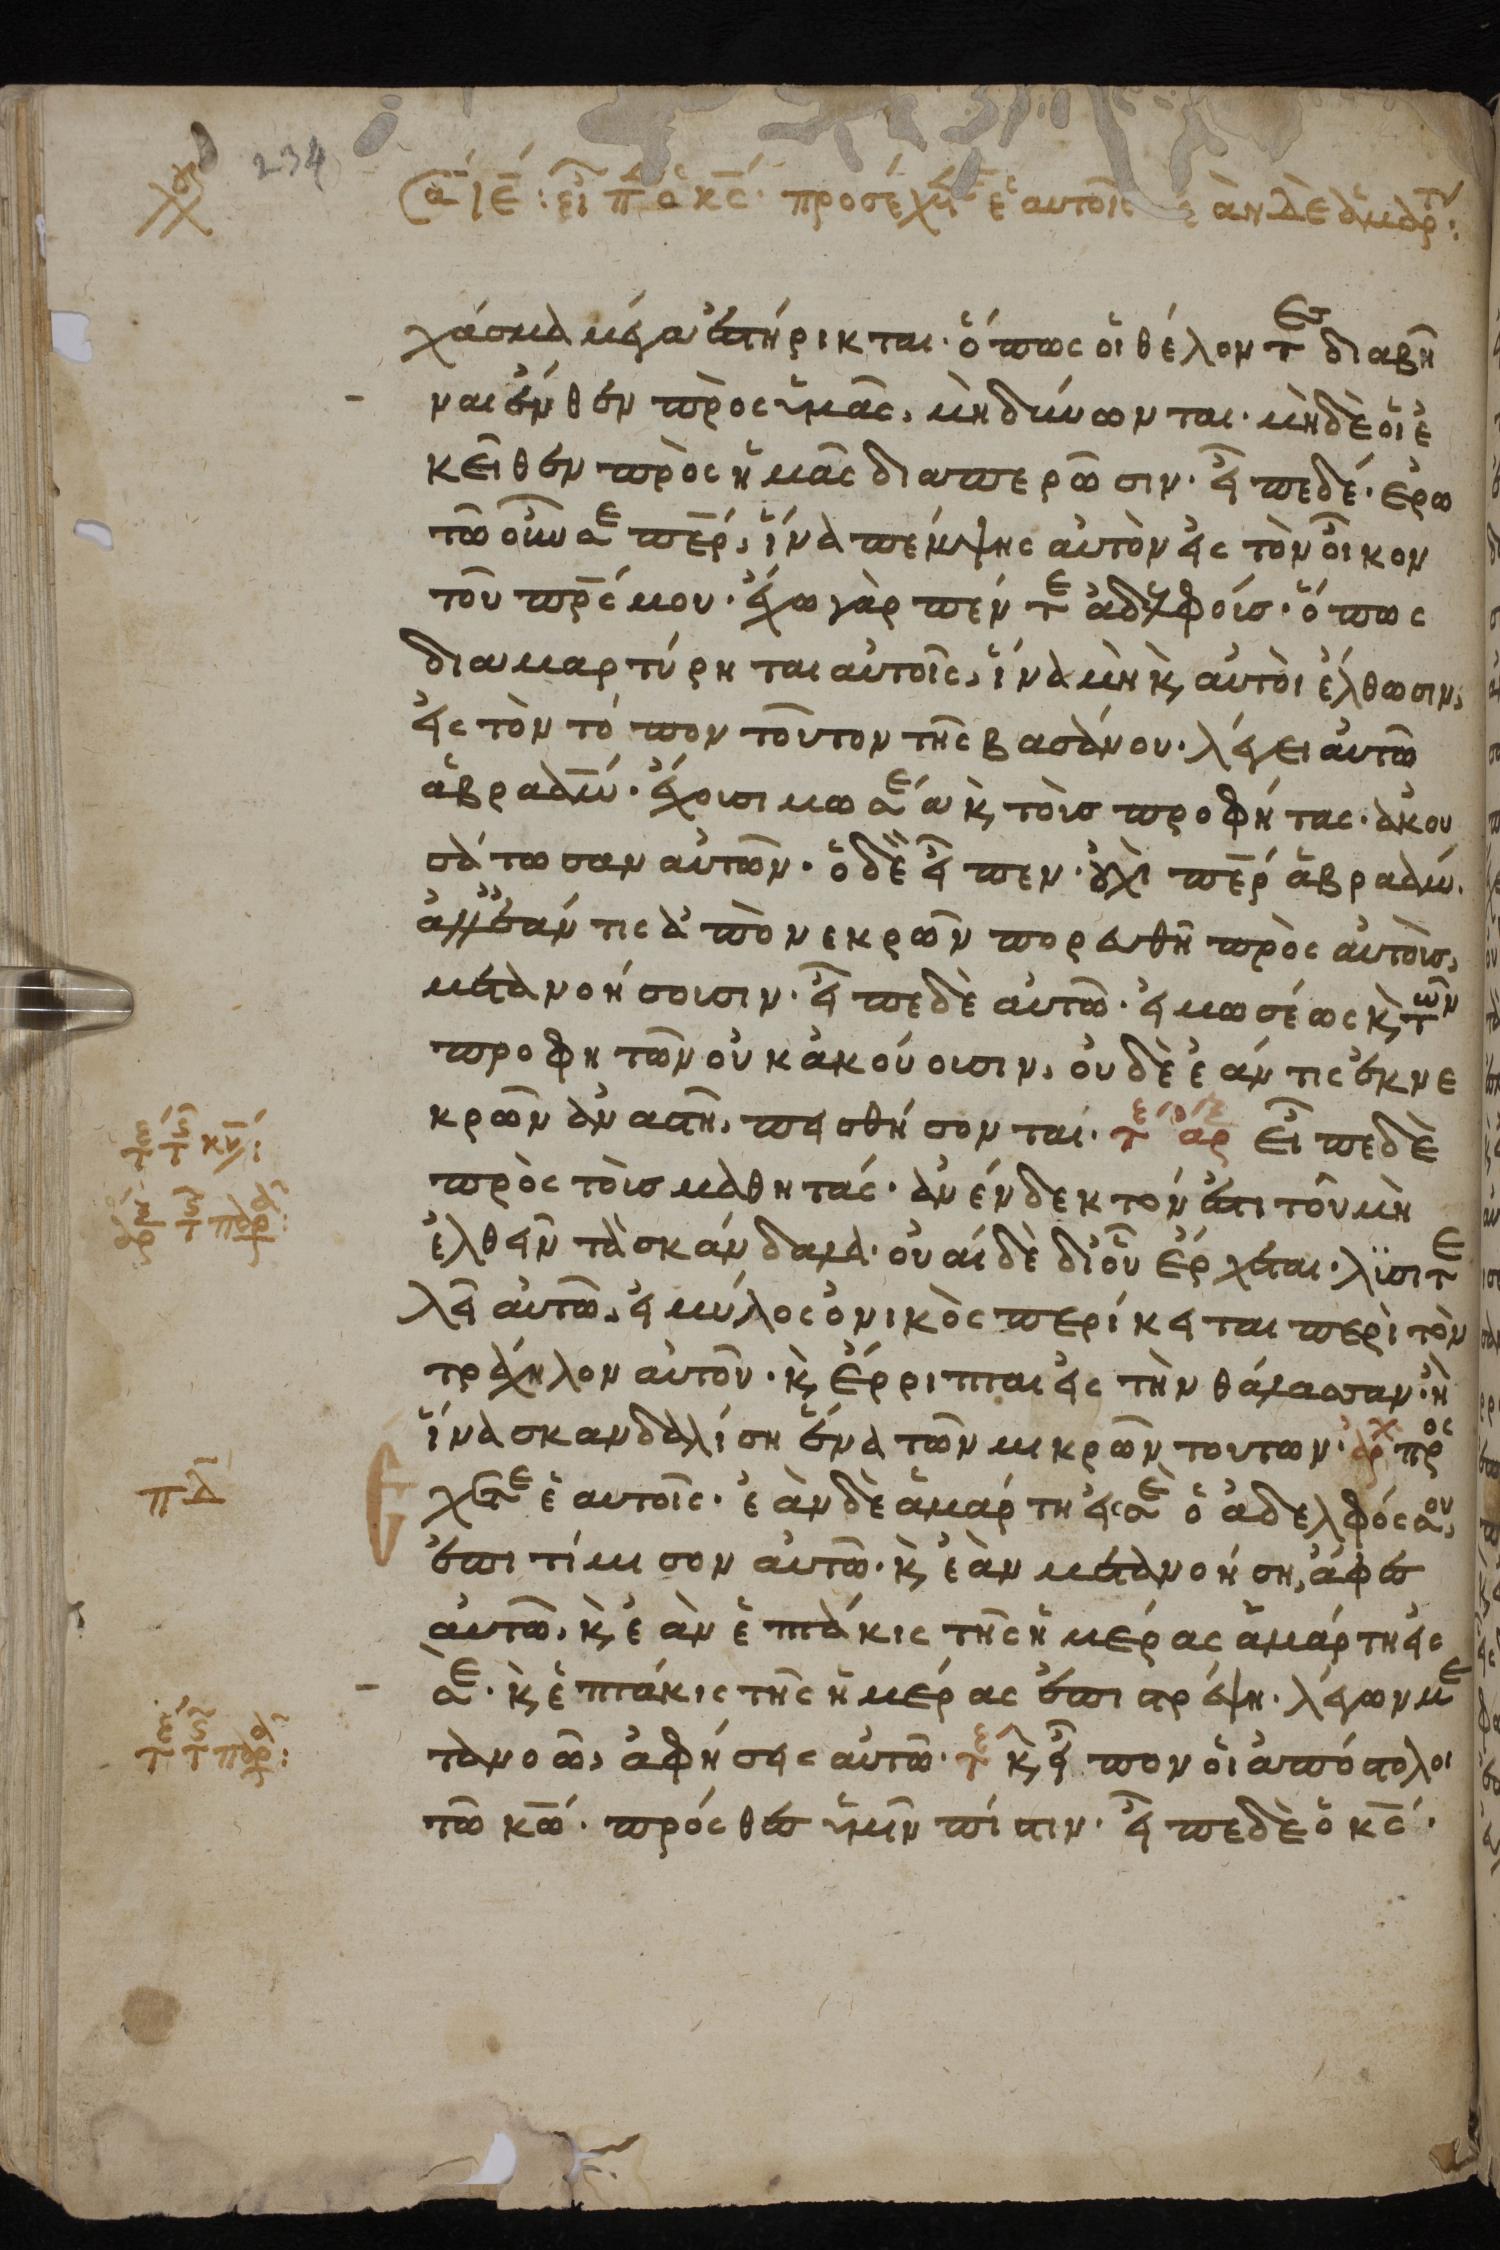 234
εἶπ ὁ κς̄· προσέχετε ἑαυτοῖς ἐὰν δὲ ἁμάρτη:
χάσμα μέγα ἐστήρικται· ὅπως οἱ θέλοντες διαβῆ
ναι ἔνθεν πρὸς ὑμᾶς, μὴ δύνωνται· μηδὲ οἱ ἐ
κεῖθεν πρὸς ἡμᾶς διαπερῶσιν· εἶπε δέ· ἐρω
τῶ οὖν σε π̄ερ, ἵνα πέμψης αὐτὸν εἰς τὸν οἶκον
τοῦ πρ̄ς μου· ἔχω γὰρ πέντε ἀδελφούσ· ὅπως
διαμαρτύρηται αὐτοῖς, ἵνα μὴ κ αὐτοὶ ἔλθωσιν,
εἰς τὸν τόπον τοῦτον τῆς βασάνου· λέγει αὐτῶ
ἀβραάμ· ἔχουσι μωσέα κ τοὺσ προφήτας· ἀκου
σάτωσαν αὐτῶν· ὁ δὲ εἶπεν· οὐχὶ π̄ερ ἀβραάμ.
ἀλλ' ἐάν τις ἀπὸ νεκρῶν πορευθῆ πρὸς αὐτοὺσ,
μετανοήσουσιν· εἶπε δὲ αὐτῶ· εἰ μωσέως κ τῶν
προφητῶν οὐκ ἀκούουσιν, οὐδὲ ἐάν τις ἐκ νε
κρῶν ἀναστῆ, πεισθήσονται· τε αρ Εἶπε δὲ
πρὸς τοὺσ μαθητάς· ἀνένδεκτόν ἐστι τοῦ μὴ
ἐλθεῖν τὰ σκάνδαλα· οὐαί δὲ δι' οὗ ἔρχεται· λϋσιτε
λεῖ αὐτῶ, εἰ μύλος ὀνικὸς περίκειται περὶ τὸν
τράχηλον αὐτοῦ· κ ἔρριπται εἰς τὴν θάλασσαν· ἢ
ἵνα σκανδαλίση ἕνα τῶν μικρῶν τουτων· ἀρχ προσ
Εχετε ἑαυτοῖς· ἐὰν δὲ ἁμάρτη εἰς σε ὁ ἀδελφός σου,
ἐπιτίμησον αὐτῶ· κ ἐὰν μετανοήση, ἄφες
αὐτῶ, κ ἐὰν ἑπτάκις τῆς ἡμέρας ἁμάρτη εἰς
σε· κ ἑπτάκις τῆς ἡμέρας ἐπιστρέψη· λέγων με
τανοῶ, ἀφήσεις αὐτῶ· τε κ εἶπον οἱ ἀπόστολοι
τῶ κῶ· πρόσθες ἡμῖν πίστιν· εἶπε δὲ ὁ κς̄·
πδ